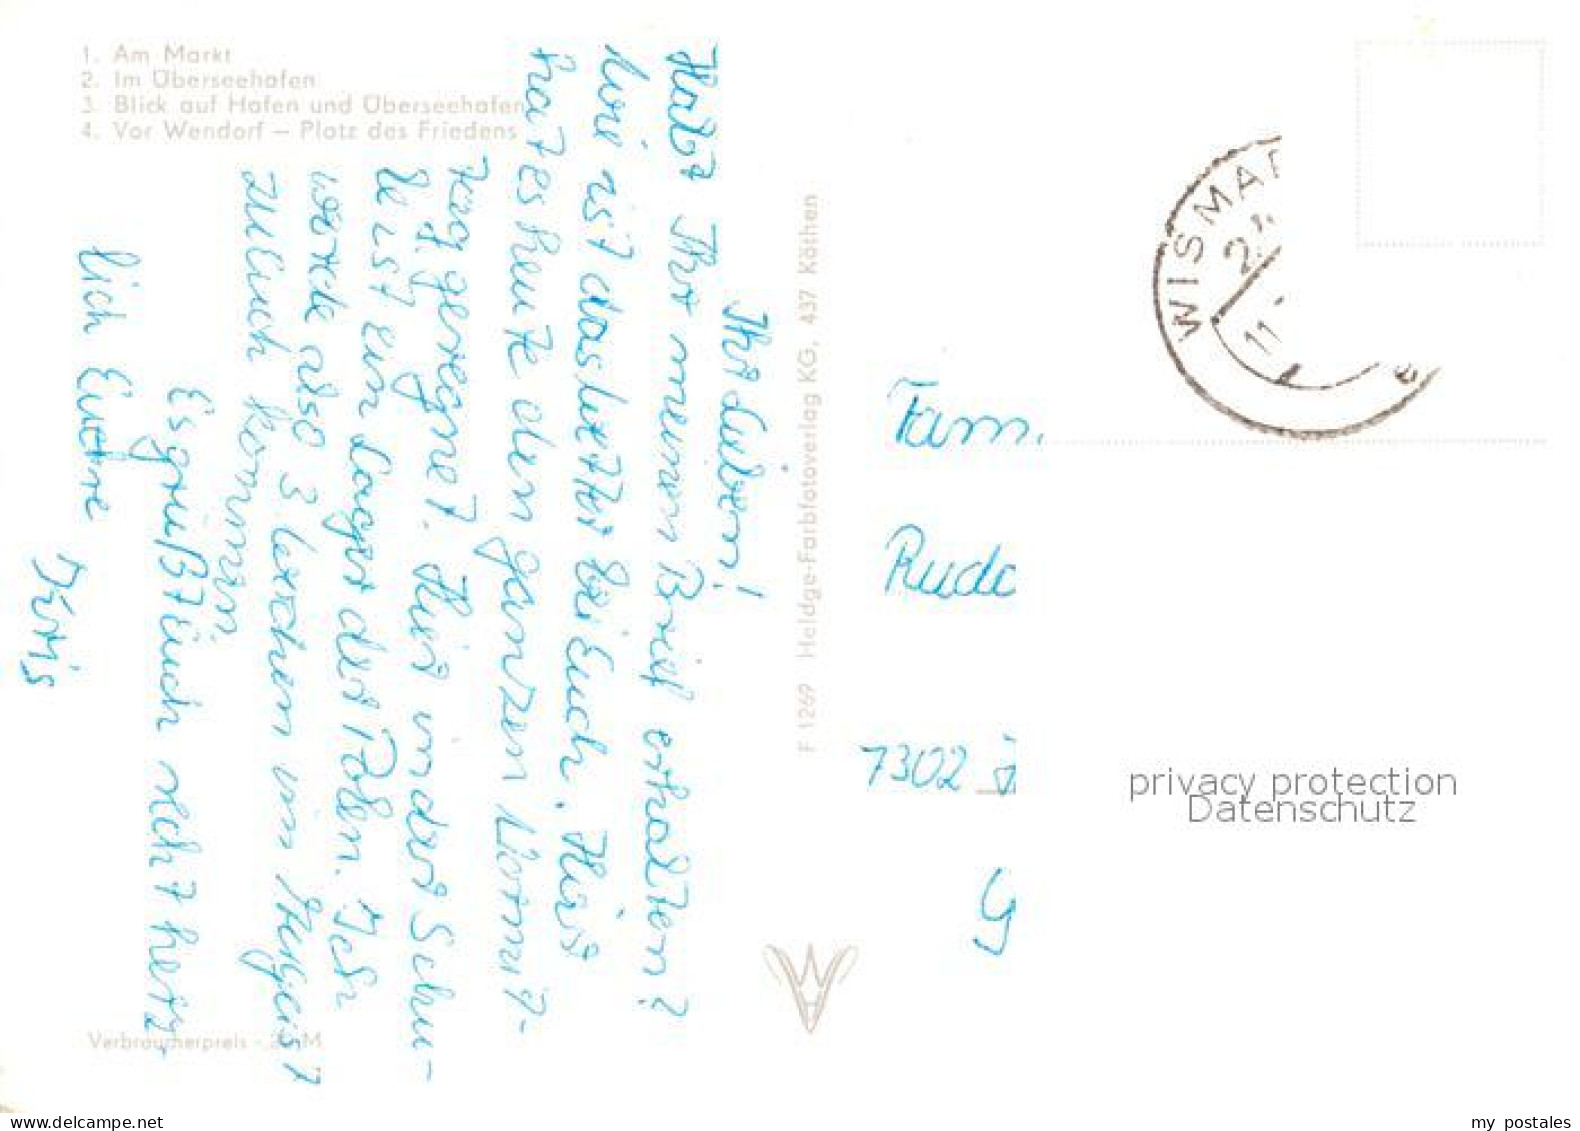 1. Am Markt
2. Im Überseehafen
3. Blick auf Hafen und Überseehafen
4. Vor Wendorf – Platz des Friedens
Ihr Lieben!
Habt Ihr meinen Brief erhalten?
Wie ist das Wetter bei Euch. Hier
hat es heute den ganzen Vormit-
tag geregnet. Hier in der Schu-
le ist ein Lager der Polen. Ich
werde also 3 Wochen im August
zu Euch kommen.
Es grüßt Euch recht herz-
lich Eure
Iris
Verbraucherpreis -,20 M
F 1269 Heldge-Farbfotoverlag KG, 437 Köthen
WISMAR
11
Fam.
Rudo
7302
privacy protection
Datenschutz
www.delcampe.net
my_postales